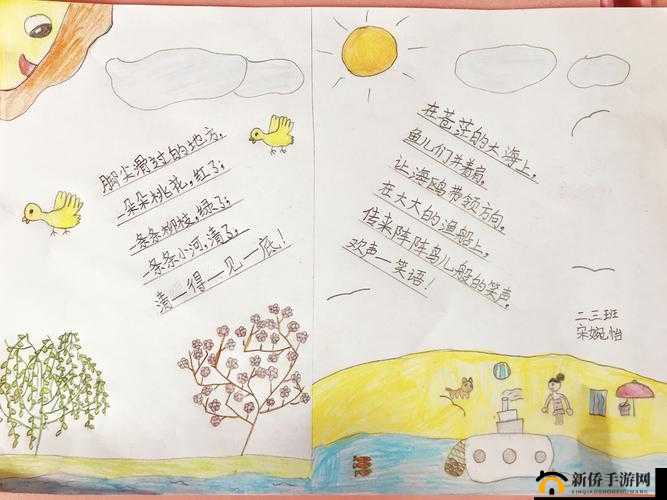 脚尖滑过的地方，
一朵朵桃花，红了；
一条条柳枝，绿了；
一条条小河，清了，
清一得一见一底！
在苍茫的大海上，
鱼儿们并着肩，
让海鸥带领方向，
在大大的渔船上，
传来阵阵鸟儿般的笑声，
欢声一笑语！
二三班
宋婉怡
新侨手游网
XINQIAOSHOUYOU.WANG